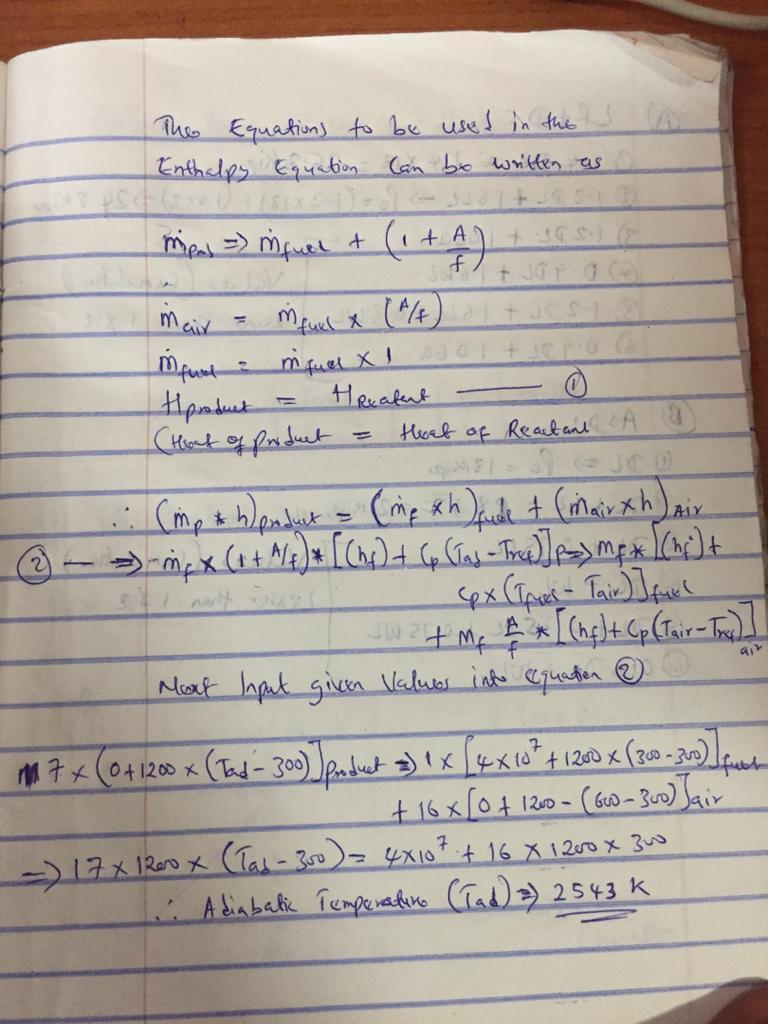 The Equations to be used in the
Enthalpy Equation Can be written as
ṁprod => ṁfuel + (1 + A/f)
ṁair = ṁfuel x (A/f)
ṁfuel = ṁfuel x 1
Hproduct = HReactant ——— ①
(Heat of product = Heat of Reactant
∴ (ṁp * h)product = (ṁf * h)fuel + (ṁair x h)Air
② — => ṁf x (1 + A/f) * [(hf) + Cp (Tad - Tref)]P => mf * [(hf) +
Cp x (Tfuel - Tair)]fuel
+ Mf A/f * [(hf) + Cp (Tair - Tref)]air
Next Input given Values into equation ②
17 x (0 + 1200 x (Tad - 300)]product => 1 x [4 x 10⁷ + 1200 x (300 - 300)]fuel
+ 16 x [0 + 1200 - (600 - 300)]air
=> 17 x 1200 x (Tad - 300) = 4 x 10⁷ + 16 x 1200 x 300
∴ Adiabatic Temperature (Tad) => 2543 K